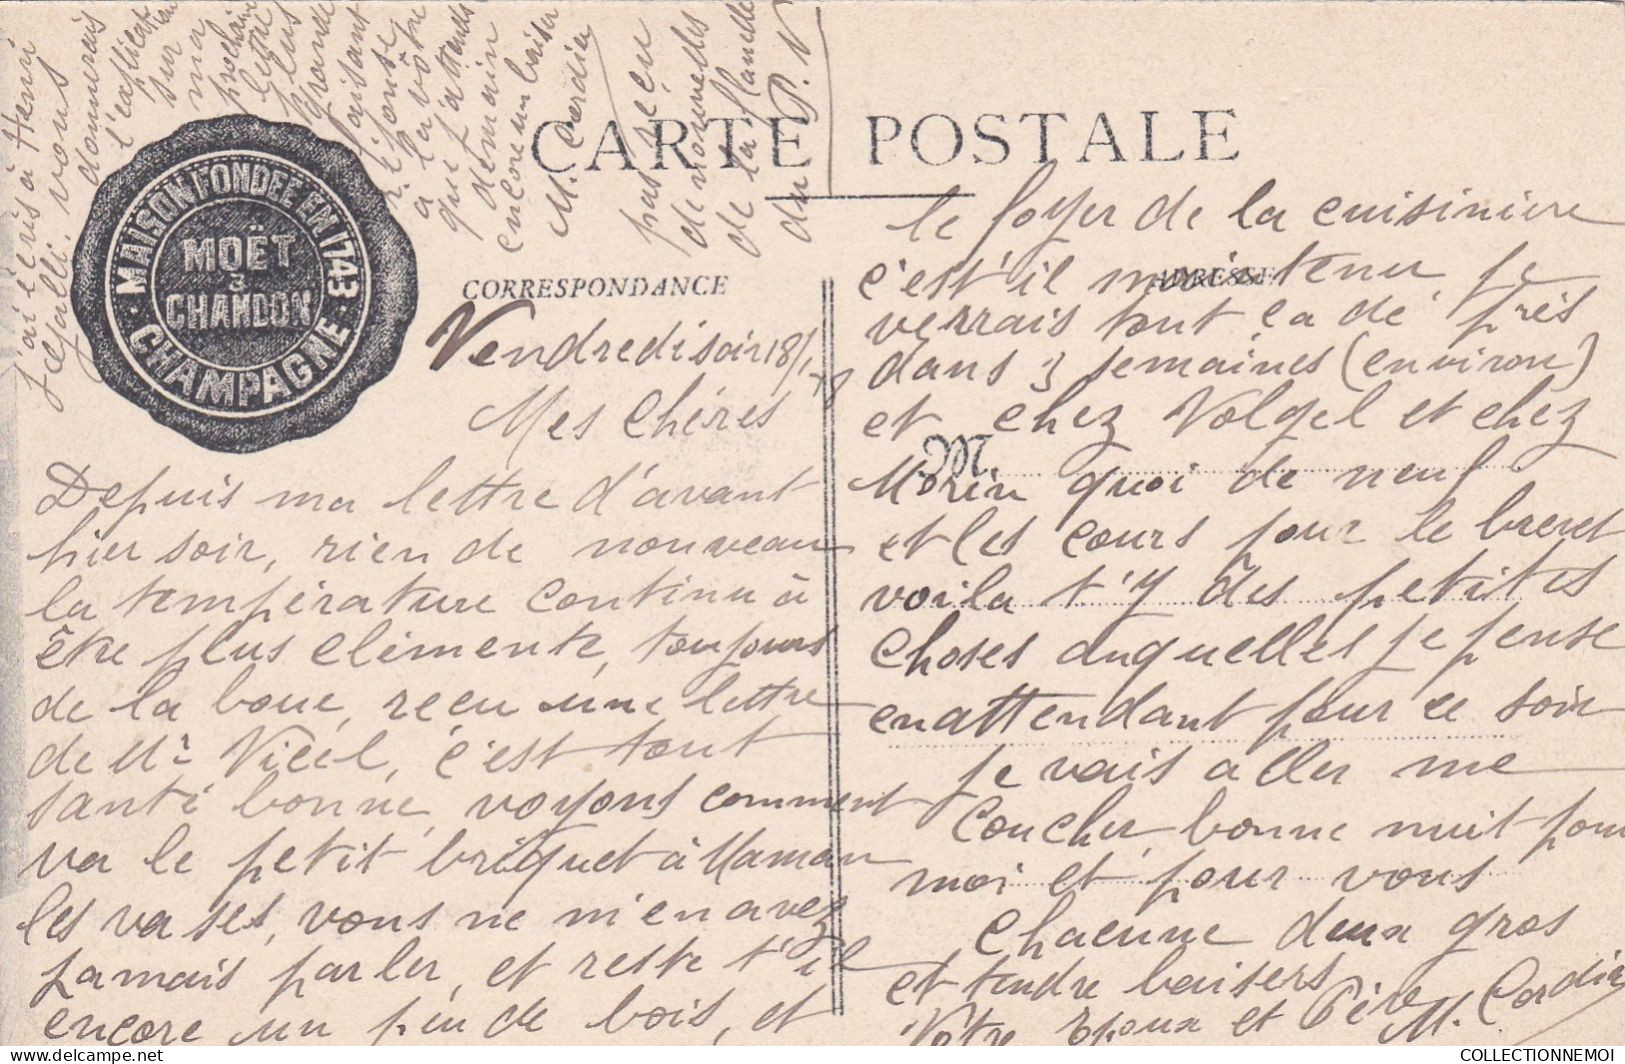 CARTE POSTALE
MAISON FONDÉE EN 1743
MOËT
&
CHANDON
CHAMPAGNE
CORRESPONDANCE
ADRESSE
M
Vendredi soir 18/1
Mes Chéres
Depuis ma lettre d'avant
hier soir, rien de nouveau
la température continu à
être plus clémente, toujours
de la boue, reçu une lettre
de Mr Vieil, c'est tout
santé bonne, voyons comment
va le petit briquet à Maman
les vases, vous ne m'en avez
jamais parler, et reste t'il
encore un peu de bois, et
le foyer de la cuisiniere
c'est'il maintenu, je
verrais tout ça de près
dans 3 semaines (environ)
et chez Volgel et chez
Morin quoi de neuf
et les cours pour le brevet
voila t'y des petites
choses auquelles je pense
en attendant pour ce soir
je vais aller me
Coucher, bonne nuit pour
moi et pour vous
Chacune deux gros
et tendre baisers
Votre Epoux et Père M. Cordier
J'ai écris à Henri
Segalli, vous
donnerais
l'explication
sur
ma
prochaine
lettre
plus
grande
faisant
réponse
à la vôtre
que j'attends
demain
encore un baiser
M. Cordier
pas reçu
de nouvelles
de la flamelle
du P. V
COLLECTIONNEMOI